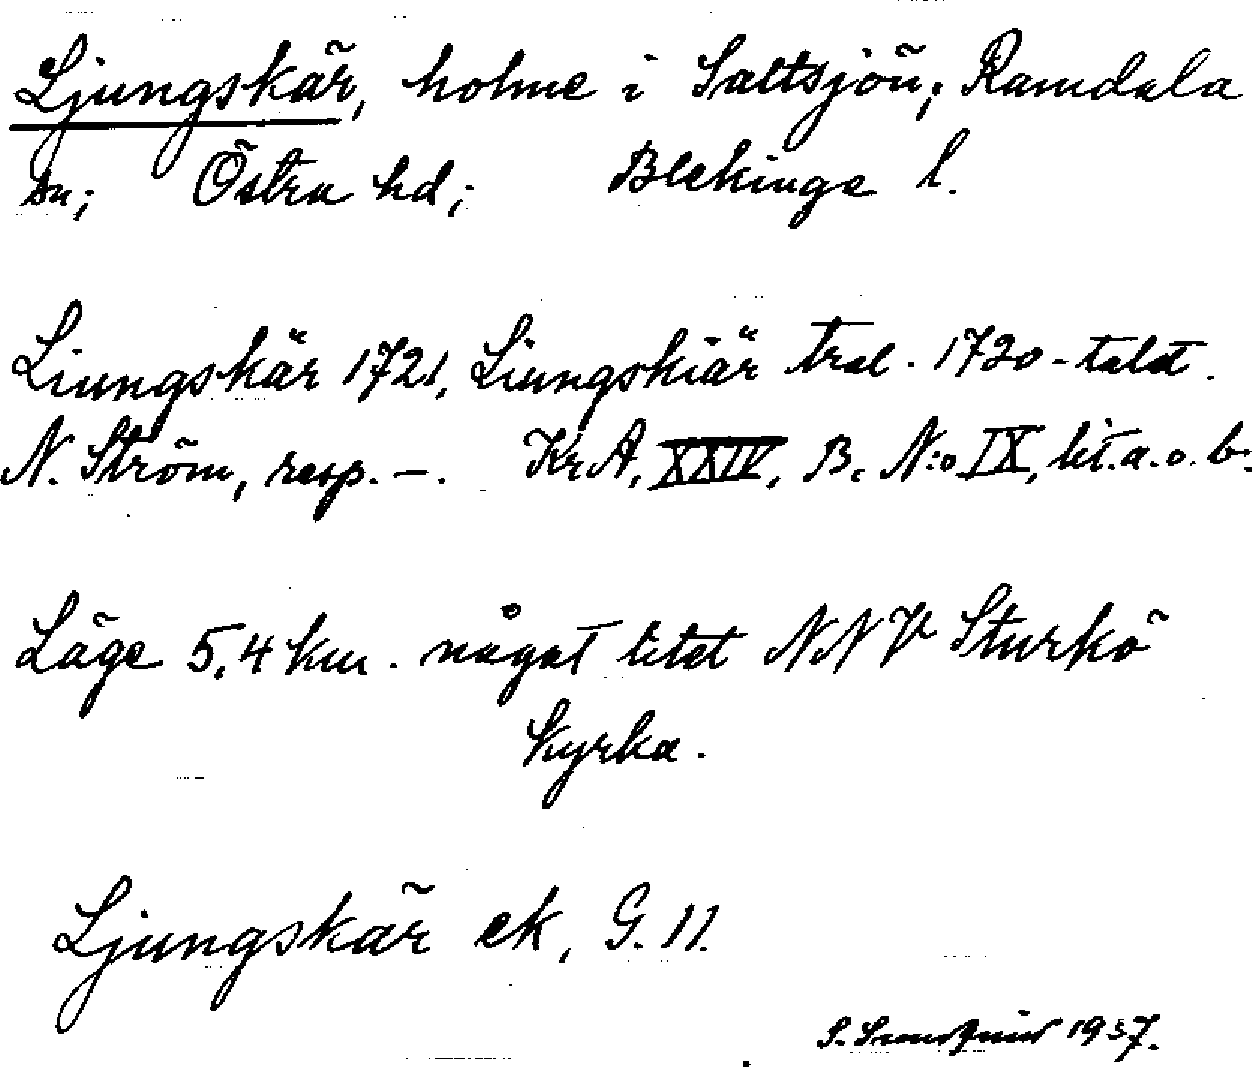 Ljungskär, holme i Saltsjön; Ramdala
sn; Östra hd; Blekinge l.
Liungskär 1721, Liungskiär tral. 1720-talet.
N. Ström, resp. –. Kr A, XXIV, B. N:o IX, lit. a. o. b.
Läge 5,4 km. något litet NNV Sturkö
kyrka.
Ljungskär ek, G. 11.
S. 1937.